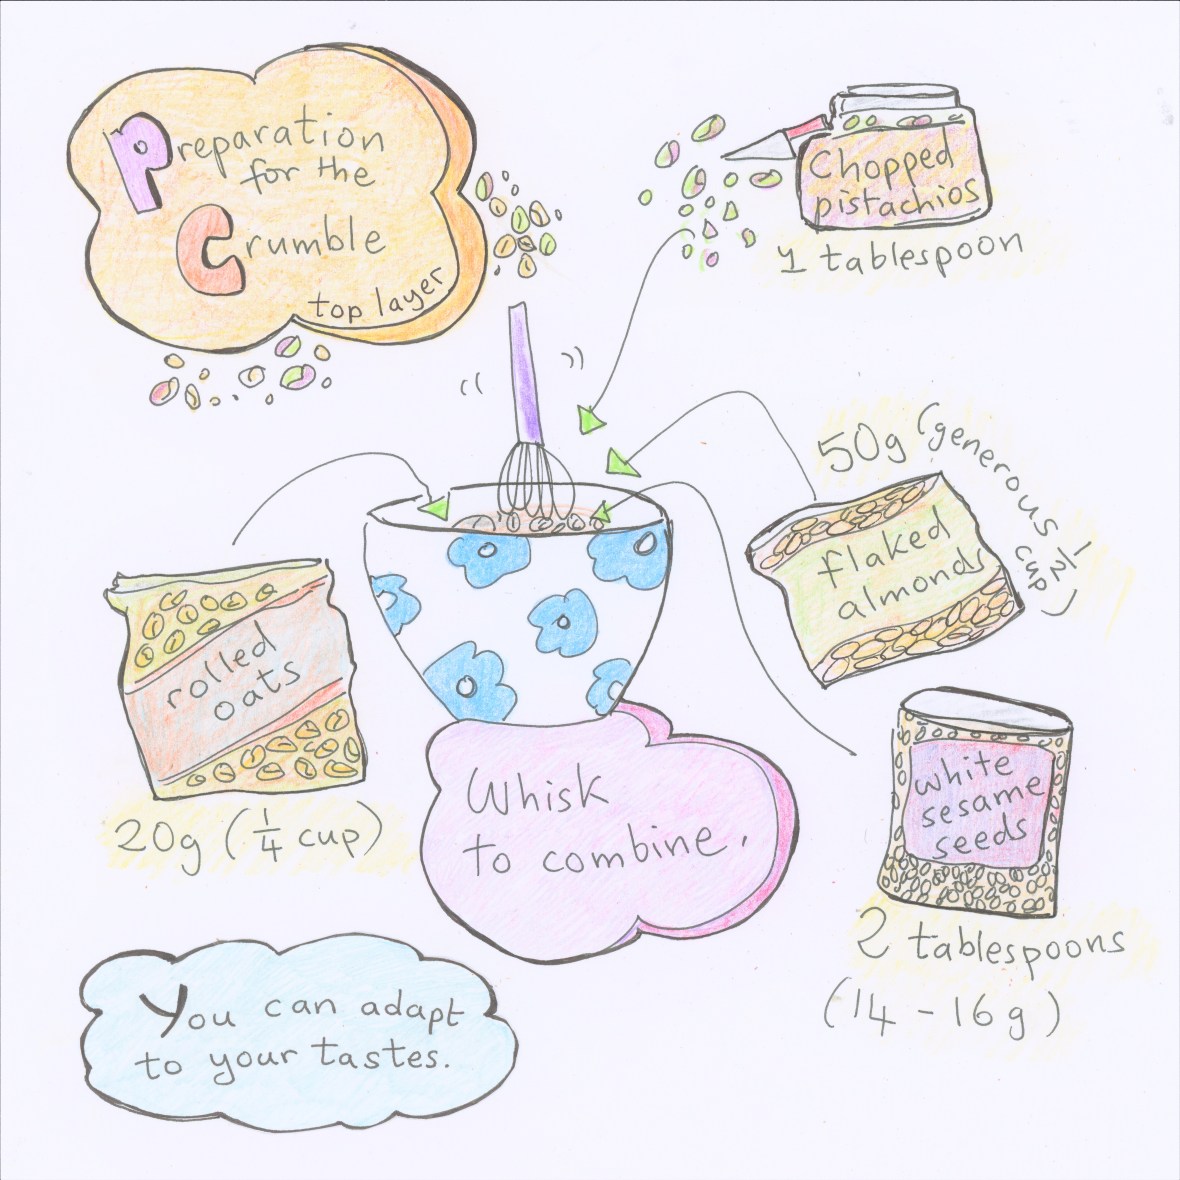 Preparation
for the
Crumble
top layer
Chopped
pistachios
1 tablespoon
50g (generous 1/2 cup)
flaked
almonds
rolled
oats
20g (1/4 cup)
white
sesame
seeds
2 tablespoons
(14 - 16g)
Whisk
to combine.
You can adapt
to your tastes.